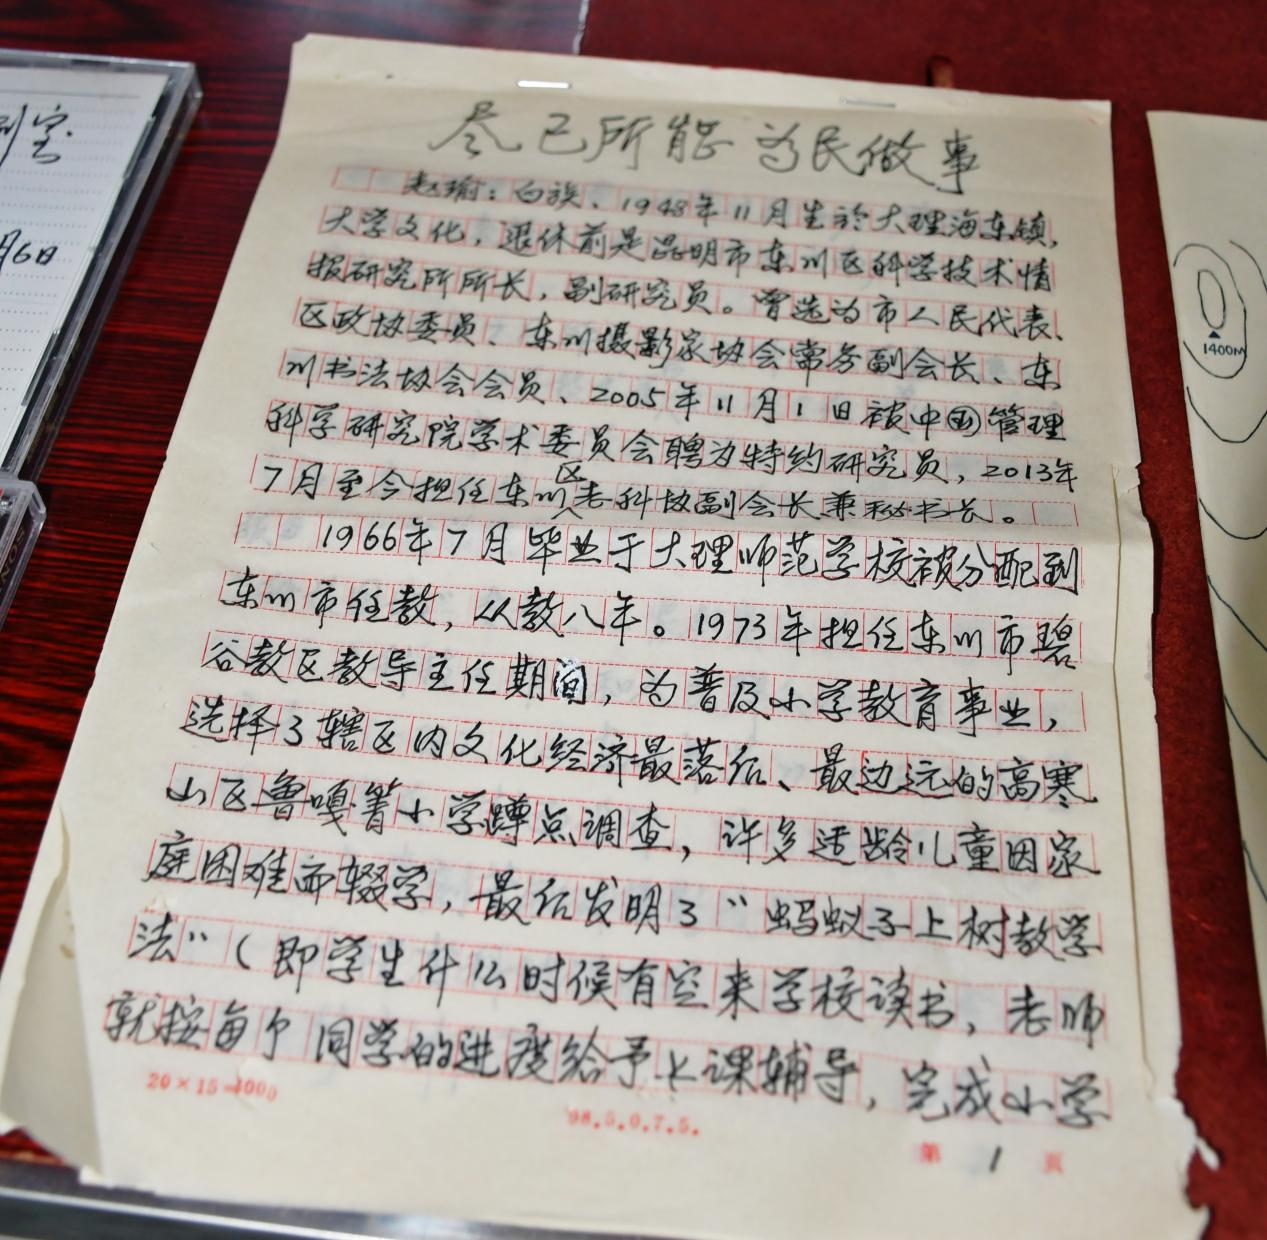 尽己所能为民做事
赵瑜：白族、1948年11月生於大理海东镇，
大学文化，退休前是昆明市东川区科学技术情
报研究所所长，副研究员。曾选为市人民代表、
区政协委员、东川摄影家协会常务副会长、东
川书法协会会员、2005年11月1日被中国管理
科学研究院学术委员会聘为特约研究员，2013年
7月至今担任东川区老科协副会长兼秘书长。
1966年7月毕业于大理师范学校被分配到
东川市任教，从教八年。1973年担任东川市碧
谷教区教导主任期间，为普及小学教育事业，
选择了辖区内文化经济最落后、最边远的高寒
山区鲁嘎箐小学蹲点调查，许多适龄儿童因家
庭困难而辍学，最后发明了"蚂蚁子上树教学
法"（即学生什么时候有空来学校读书，老师
就按每个同学的进度给予上课辅导，完成小学
20×15=300
98.5.0.7.5.
第 1 页
月6日
1400M